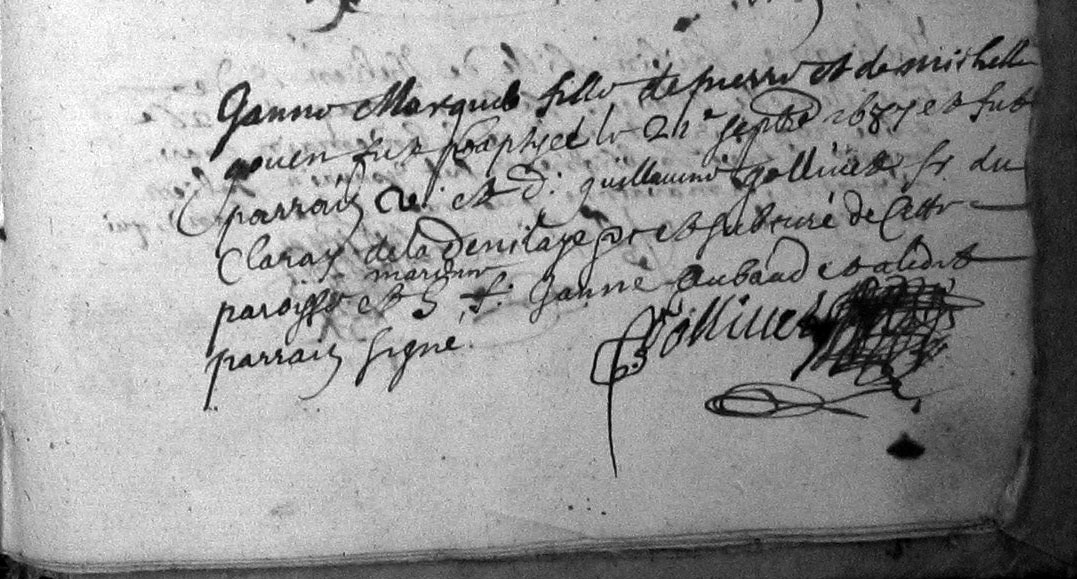 Janne Marquis fille de pierre et de michelle
gouen fut baptisée le 21e septbre 1687 et fut
parrain et d: guillaume gollivet sr du
Claray de la Denilaye pr et subcuré de cette
paroisse et marenne h f: Janne Aubaud et aledit
parrain signé.
Gollivet